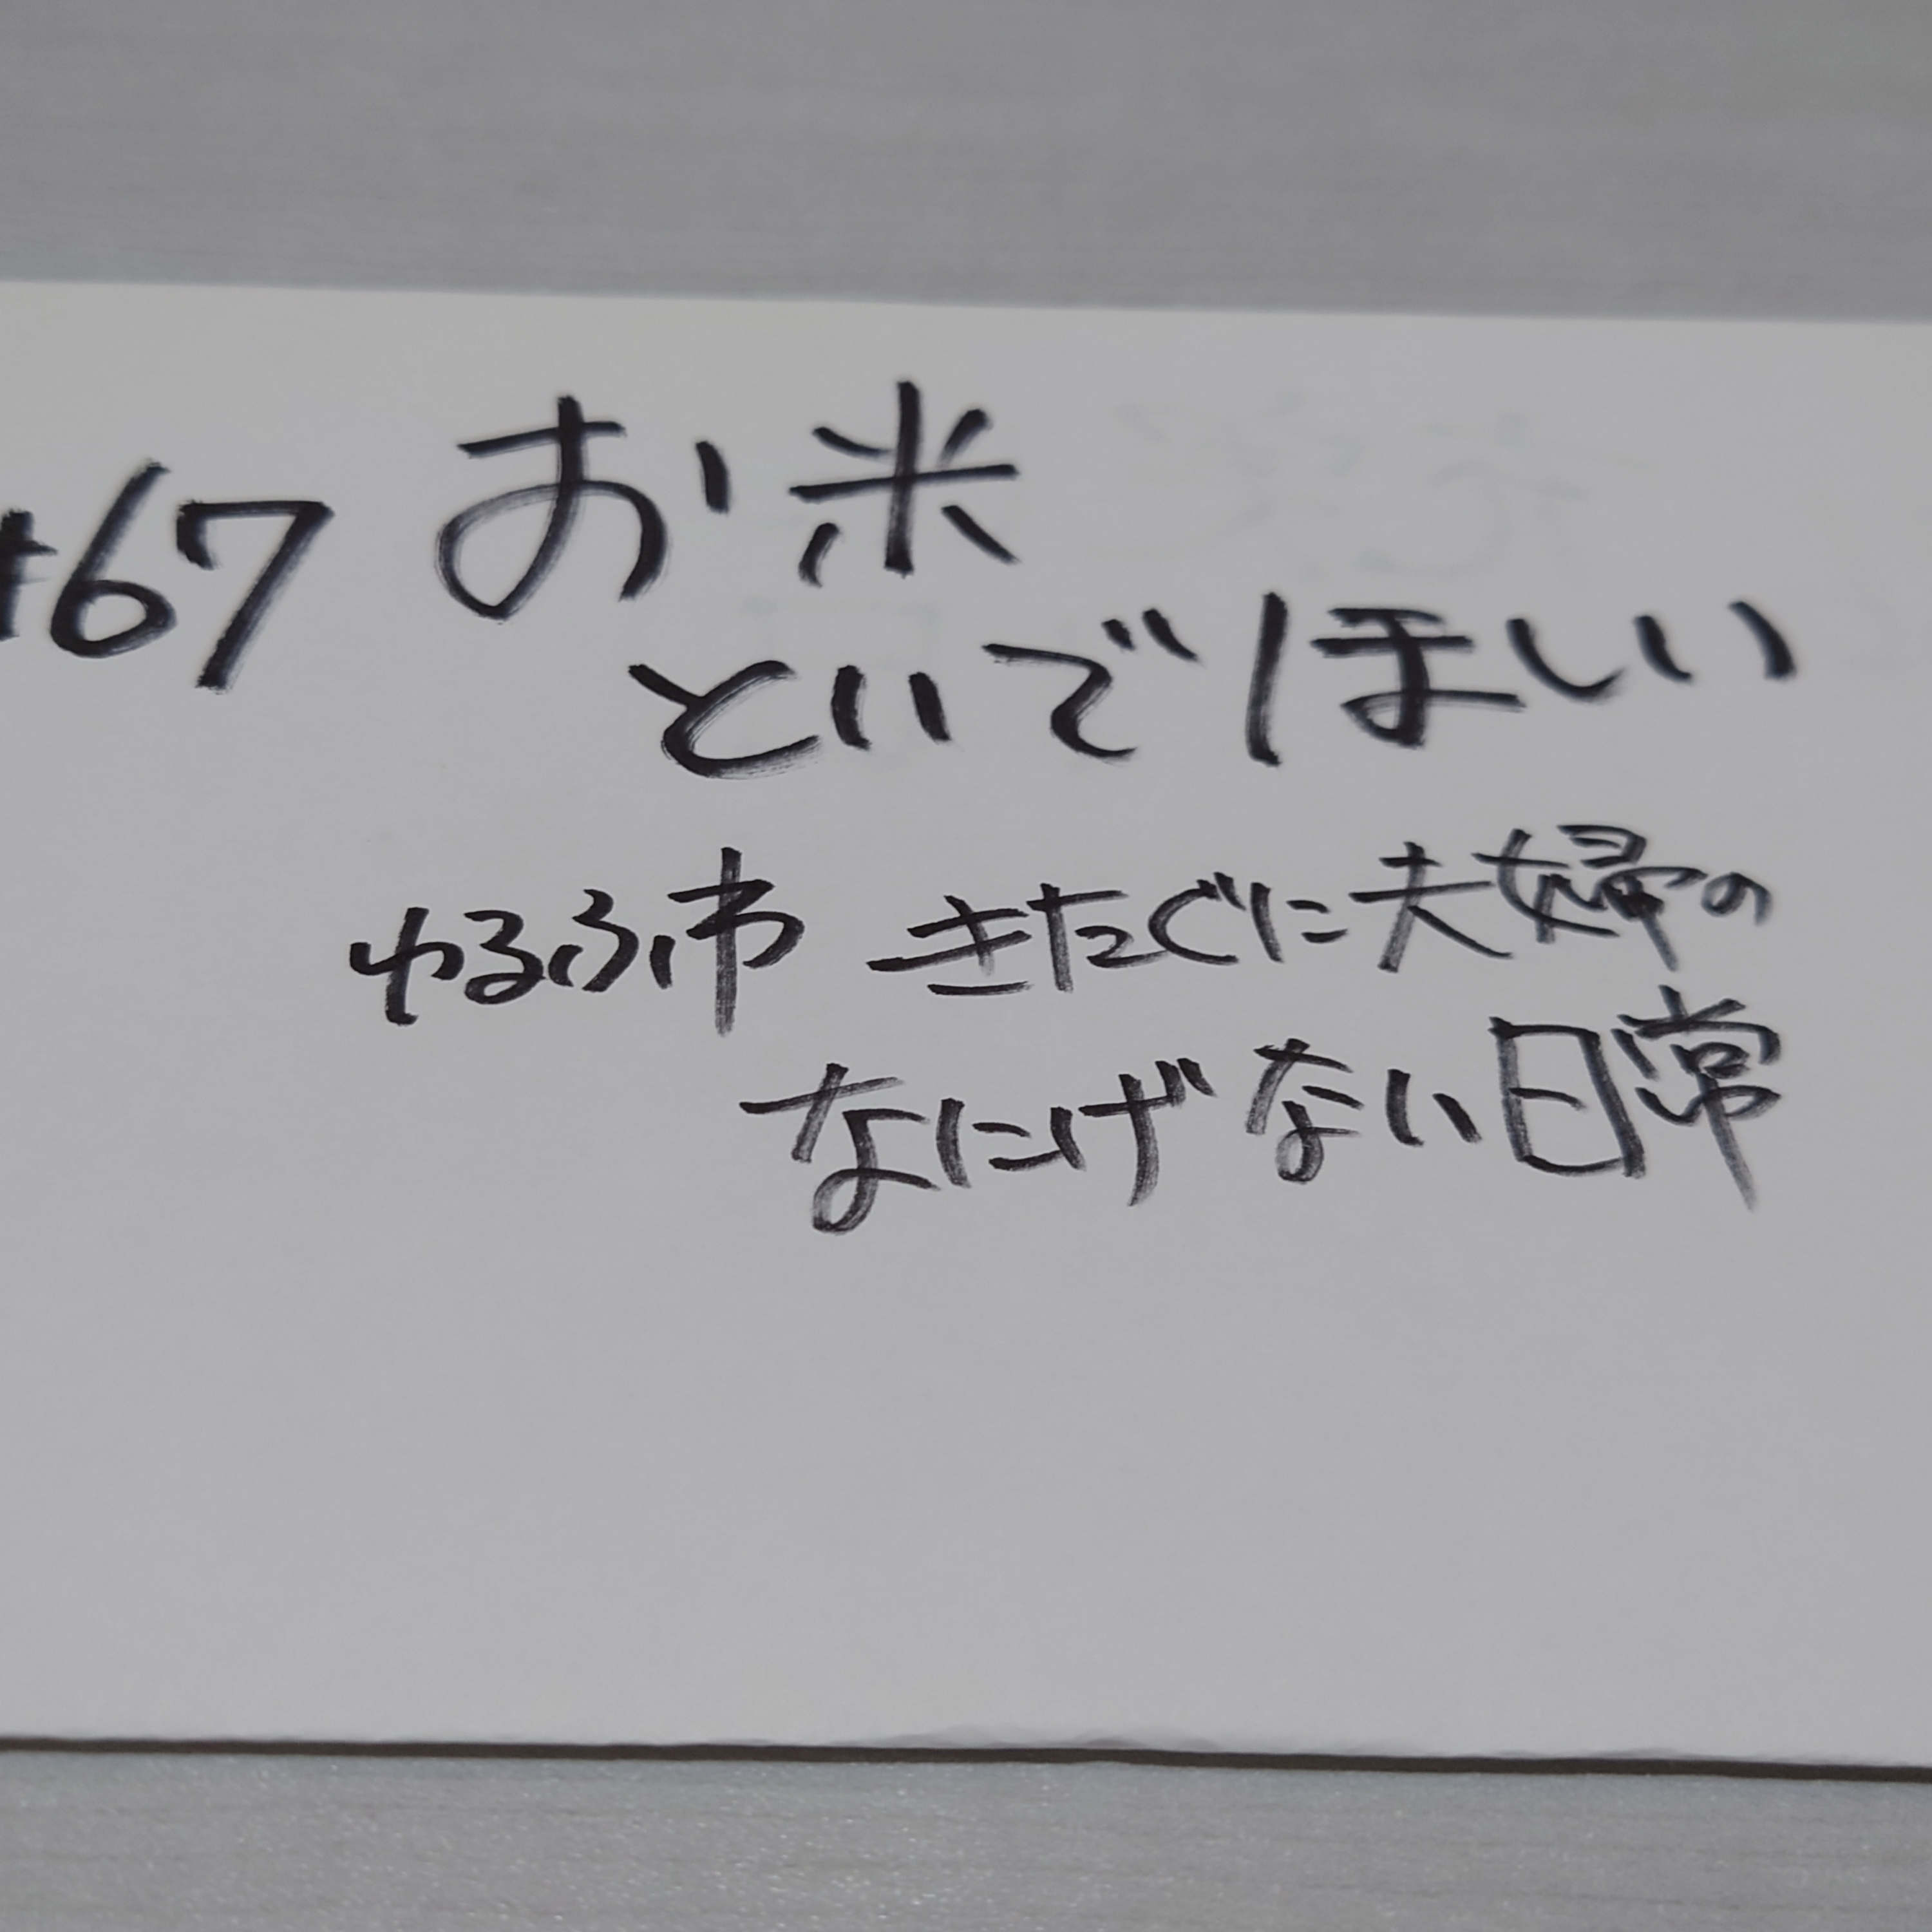 #67 お米
といでほしい
ゆるふわ きたぐに夫婦の
なにげない日常